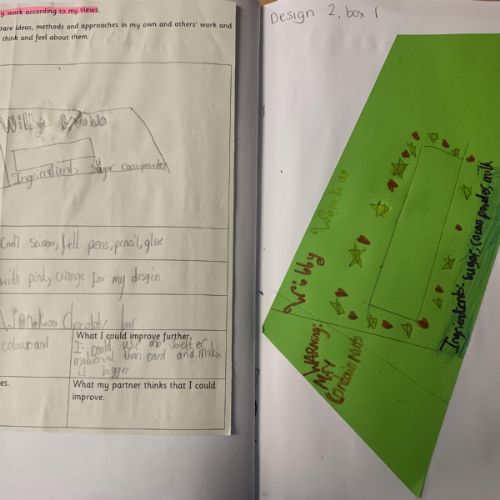 y work according to my views.
pare ideas, methods and approaches in my own and others' work and
think and feel about them.
Ingridients sugar cocopowder
felt pens, pencil, glue
with pink, orange for my desgin
bar
colour and
What I could improve further.
I could use a better
material than card and make
it bigger
es.
What my partner thinks that I could
improve.
Design 2, box 1
Wibby
WARNING:
MAY
Contain Nuts
Ingrintents: sugar, cocao powder, milk